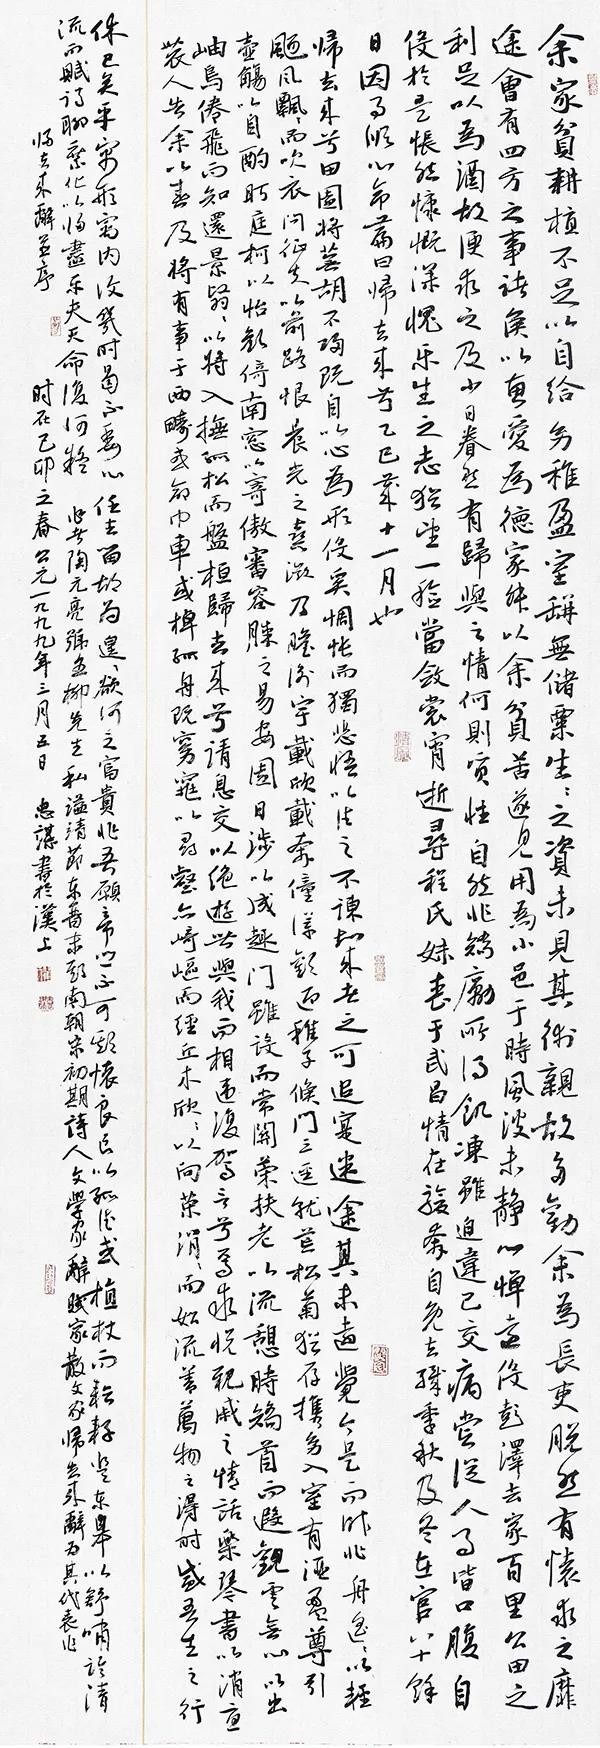 余家貧耕植不足以自給幼稚盈室缾無儲粟生〻之資未見其術親故多勸余為長吏脫然有懷求之靡
途會有四方之事諸侯以惠愛為德家叔以余貧苦遂見用為小邑于時風波未靜心憚遠役彭澤去家百里公田之
利足以為酒故便求之及少日眷然有歸與之情何則質性自然非矯勵所得飢凍雖迫違己交病嘗從人事皆口腹自
役於是悵然慷慨深愧平生之志猶望一稔當斂裳宵逝尋程氏妹喪于武昌情在駿奔自免去職季秋及冬在官八十餘
日因事順心命篇曰歸去來兮乙巳歲十一月也
歸去來兮田園將蕪胡不歸既自以心為形役奚惆悵而獨悲悟以往之不諫知來者之可追寔迷途其未遠覺今是而昨非舟遙〻以輕
颺風飄〻而吹衣問征夫以前路恨晨光之熹微乃瞻衡宇載欣載奔僮僕歡迎稚子候門三逕就荒松菊猶存攜幼入室有酒盈尊引
壺觴以自酌眄庭柯以怡顏倚南窓以寄傲審容膝之易安園日涉以成趣門雖設而常關策扶老以流憩時矯首而遐觀雲無心以出
岫鳥倦飛而知還景翳〻以將入撫孤松而盤桓歸去來兮請息交以絕遊世與我而相遺復駕言兮焉求悅親戚之情話樂琴書以消憂
農人告余以春及將有事于西疇或命巾車或棹孤舟既窈窕以尋壑亦崎嶇而經丘木欣〻以向榮涓〻而始流善萬物之得時感吾生之行
休已矣乎寓形宇內復幾時曷不委心任去留胡為遑〻欲何之富貴非吾願帝鄉不可期懷良辰以孤往或植杖而耘耔登東皋以舒嘯臨清
流而賦詩聊乘化以歸盡樂夫天命復何疑 此者陶元亮號五柳先生私諡靖節東晉末至南朝宋初期詩人文學家辭賦家散文家歸去來辭為其代表作
歸去來辭並序 时在己卯之春公元一九九九年三月五日 忠謀書於漢上